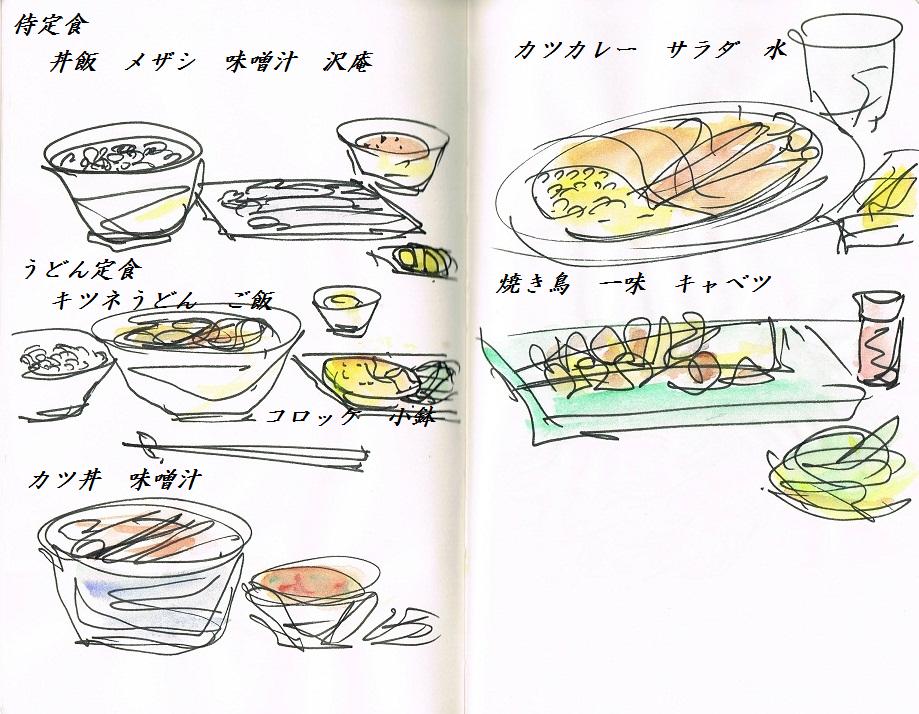 侍定食
丼飯　メザシ　味噌汁　沢庵
うどん定食
キツネうどん　ご飯
コロッケ　小鉢
カツ丼　味噌汁
カツカレー　サラダ　水
焼き鳥　一味　キャベツ